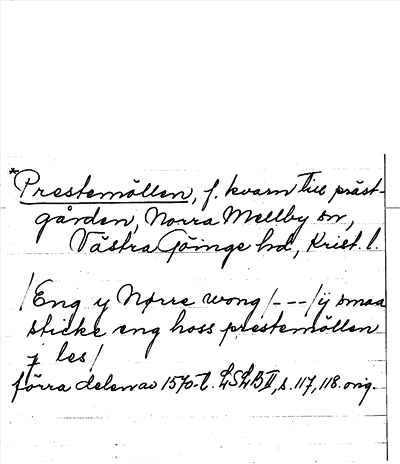 *Prestemöllen, f. kvarn till präst-
gården, Norra Mellby sn,
Västra Göinge hd, Krist. l.
/Eng y Nørre wong/---/ÿ smaa
sticke eng hoss prestemöllen
j les/
förra delen av 1570-t. LSLB II, s. 117, 118. orig.